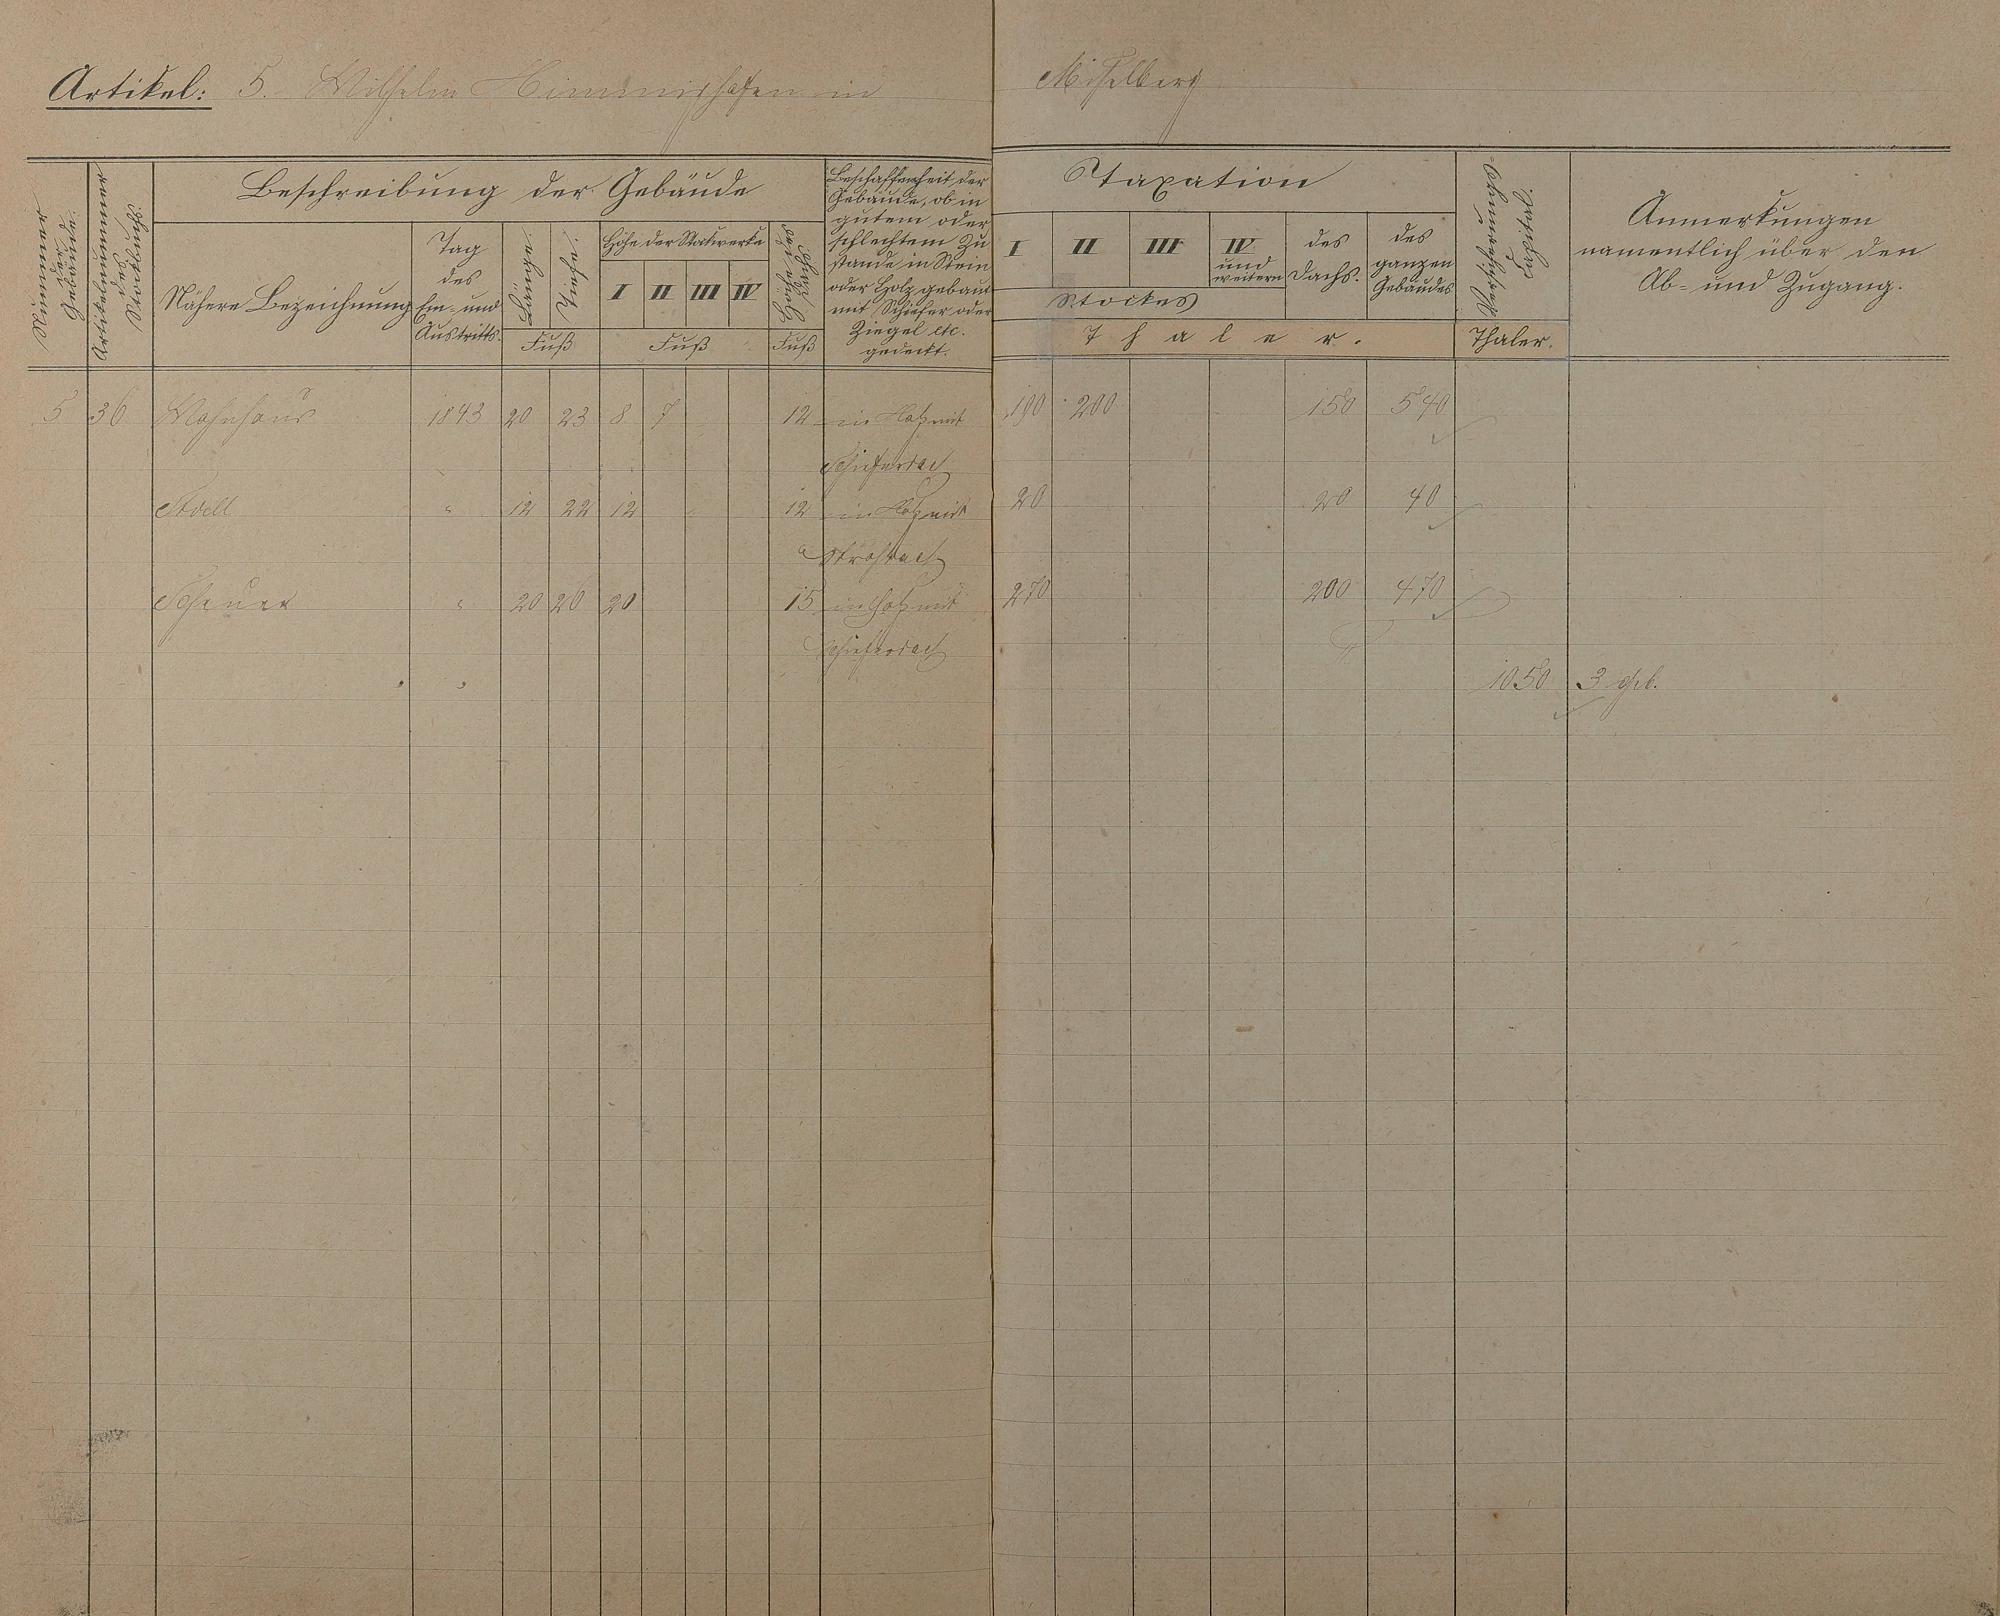 Artikel: 5. Wilhelm Himmighofen in Misselberg
Nummer der Gebäude.
Artikelnummer des Stockbuchs.
Beschreibung der Gebäude
Nähere Bezeichnung
Tag des Ein- und Austritts.
Länge.
Tiefe.
Fuß
Höhe der Stockwerke
I II III IV
Fuß
Höhe des Dachs
Fuß
Beschaffenheit der
Gebäude, ob in
gutem oder
schlechtem Zu
stande, in Stein
oder Holz gebaut
mit Schiefer oder
Ziegel etc.
gedeckt.
Taxation
I II III IV und weitern
Stockes
des Dachs.
des ganzen Gebäudes
Thaler.
Thaler.
Anmerkungen
namentlich über den
Ab- und Zugang.
5 36 Wohnhaus 1843 20 23 8 7 12 in Holz mit 190 200 150 540
Schieferdach
Stall " 12 22 12 12 in Holz mit 20 20 40
Strohdach
Scheuer " 20 26 20 15 in Holz mit 270 200 470
Schieferdach
1050 3 Geb.